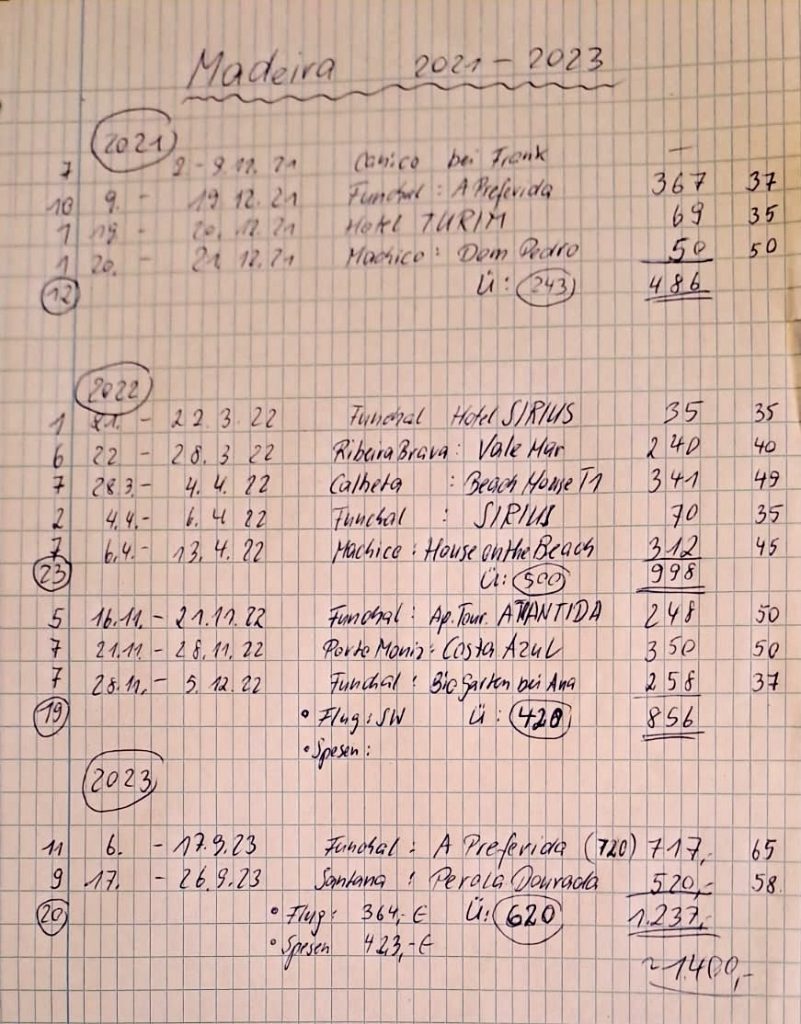 Madeira 2021 - 2023
2021
7 2 - 9.12.21 Canico bei Frank —
10 9. - 19.12.21 Funchal: A Preferida 367 37
1 19. - 20.12.21 Hotel TURIM 69 35
1 20. - 21.12.21 Machico: Dom Pedro 50 50
12 Ü: 243 486
2022
1 21. - 22.3.22 Funchal Hotel SIRIUS 35 35
6 22 - 28.3 22 Ribeira Brava: Vale Mar 240 40
7 28.3.- 4.4.22 Calheta : Beach House T1 341 49
2 4.4.- 6.4 22 Funchal : SIRIUS 70 35
7 6.4.- 13.4.22 Machico: House on the Beach 312 45
23 Ü: 500 998
5 16.11.- 21.11.22 Funchal: Ap. Tour. ATLANTIDA 248 50
7 21.11.- 28.11.22 Porto Moniz: Costa Azul 350 50
7 28.11.- 5.12.22 Funchal: Bio Garten bei Ana 258 37
19 • Flug: SW Ü: 420 856
• Spesen:
2023
11 6. - 17.9.23 Funchal: A Preferida (720) 717,- 65
9 17. - 26.9.23 Santana: Perola Dourada 520,- 58
20 • Flug: 364,-€ Ü: 620 1.237,-
• Spesen 423,-€
~1400,-